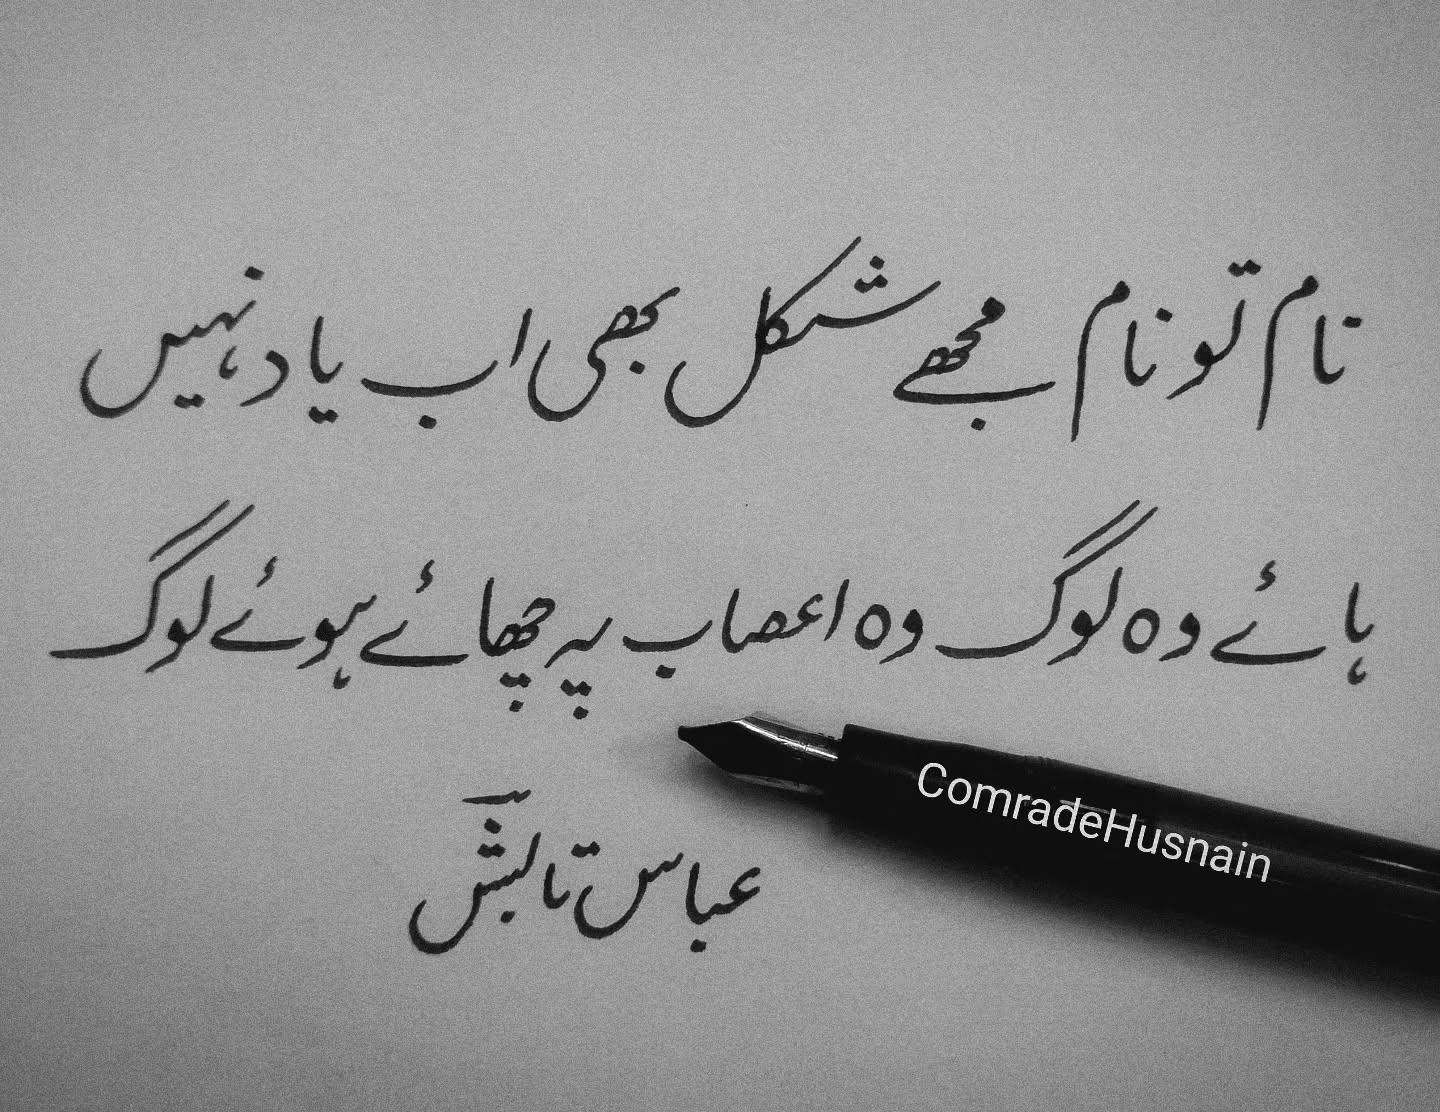 نام تو نام مجھے شکل بھی اب یاد نہیں
ہائے وہ لوگ وہ اعصاب پہ چھائے ہوئے لوگ
عباس تابش
ComradeHusnain